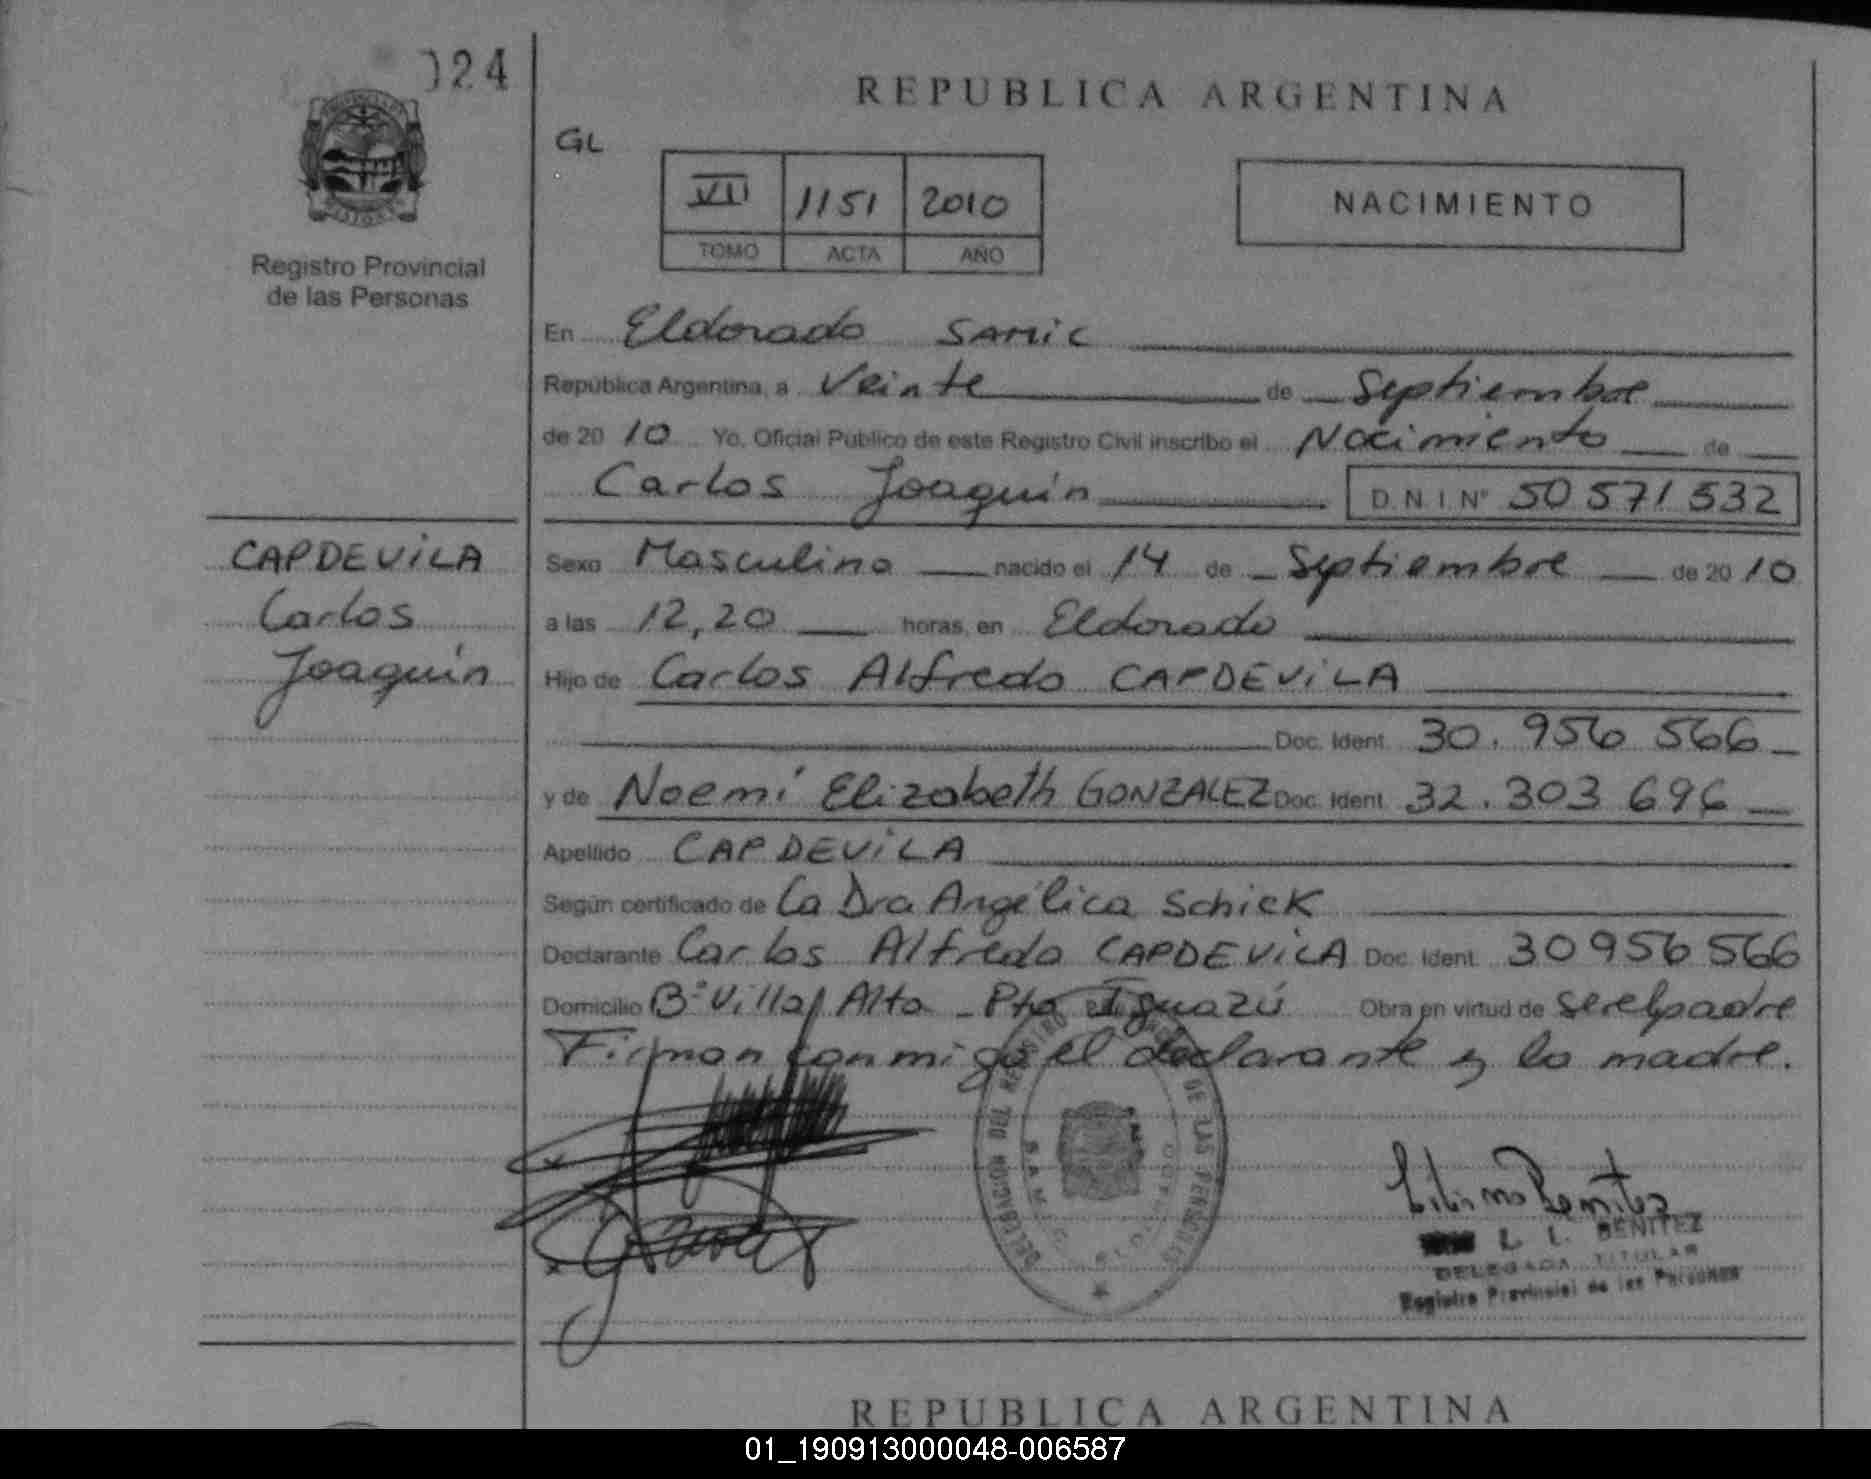 024
REPUBLICA ARGENTINA
GL
VII 1151 2010
TOMO ACTA AÑO
NACIMIENTO
Registro Provincial
de las Personas
En Eldorado SAMiC
República Argentina, a Veinte de Septiembre
de 2010 Yo, Oficial Público de este Registro Civil inscribo el Nacimiento de
Carlos Joaquín D.N.I Nº 50 571 532
CAPDEViLA
Carlos
Joaquín
Sexo Masculino nacido el 14 de Septiembre de 2010
a las 12,20 horas, en Eldorado
Hijo de Carlos Alfredo CAPDEViLA
Doc. Ident. 30.956 566
y de Noemí Elizabeth GONZALEZ Doc. Ident. 32.303 696
Apellido CAPDEViLA
Según certificado de La Dra Angélica Schick
Declarante Carlos Alfredo CAPDEViLA Doc. Ident. 30956566
Domicilio Bº Villa Alta - Pto Iguazú Obra en virtud de ser el padre
Firman conmigo el declarante y la madre.
DELEGACION DEL REGISTRO DE LAS PERSONAS
S.A.M.I.C. ELDORADO
L. L. BENITEZ
DELEGADA TITULAR
Registro Provincial de las Personas
REPUBLICA ARGENTINA
01_190913000048-006587